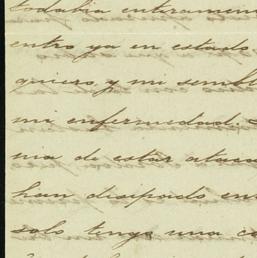 todabia enteramen
entro ya en estado
quiero, y mi sembl
mi enfermedad.
nia de estar ataca
han disipado en
solo tengo una co